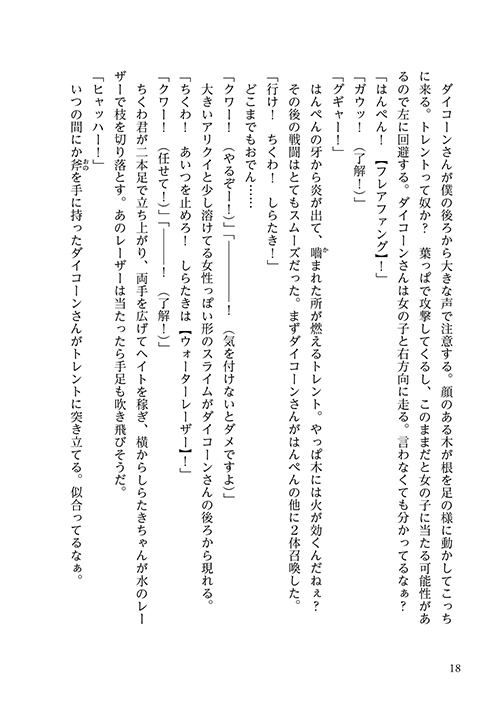 ダイコーンさんが僕の後ろから大きな声で注意する。顔のある木が根を足の様に動かしてこっち
に来る。トレントって奴か？　葉っぱで攻撃してくるし、このままだと女の子に当たる可能性があ
るので左に回避する。ダイコーンさんは女の子と右方向に走る。言わなくても分かってるなぁ？
「はんぺん！　【フレアファング】！」
「ガウッ！　（了解！）」
「グギャー！」
　はんぺんの牙から炎が出て、嚙まれた所が燃えるトレント。やっぱ木には火が効くんだねぇ？
か
　その後の戦闘はとてもスムーズだった。まずダイコーンさんがはんぺんの他に２体召喚した。
「行け！　ちくわ！　しらたき！」
　どこまでもおでん……
「クワー！　（やるぞー！）」「――――！　（気を付けないとダメですよ）」
　大きいアリクイと少し溶けてる女性っぽい形のスライムがダイコーンさんの後ろから現れる。
「ちくわ！　あいつを止めろ！　しらたきは【ウォーターレーザー】！」
「クワー！　（任せて！）」「――――！　（了解！）」
　ちくわ君が二本足で立ち上がり、両手を広げてヘイトを稼ぎ、横からしらたきちゃんが水のレー
ザーで枝を切り落とす。あのレーザーは当たったら手足も吹き飛びそうだ。
「ヒャッハー！」
　いつの間にか斧を手に持ったダイコーンさんがトレントに突き立てる。似合ってるなぁ。
おの
18